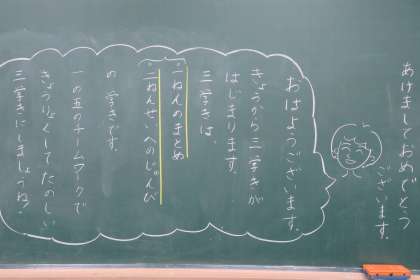 あけましておめでとう
ございます。
おはようございます。
きょうから三学きが
はじまります。
三学きは、
・一ねんのまとめ
・二ねんせいへのじゅんび
の学きです。
一の五のチームワークで
きょうりょくしてたのしい
三学きにしましょうね!